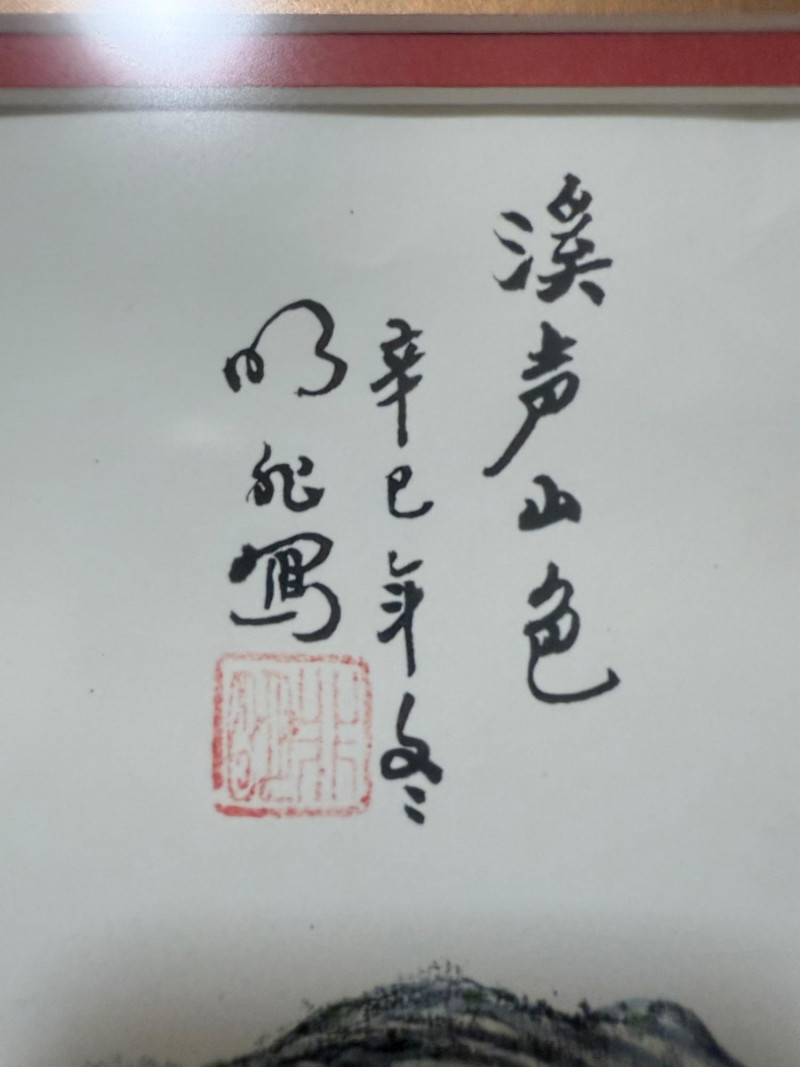 溪声山色
辛巳年冬
明 寫